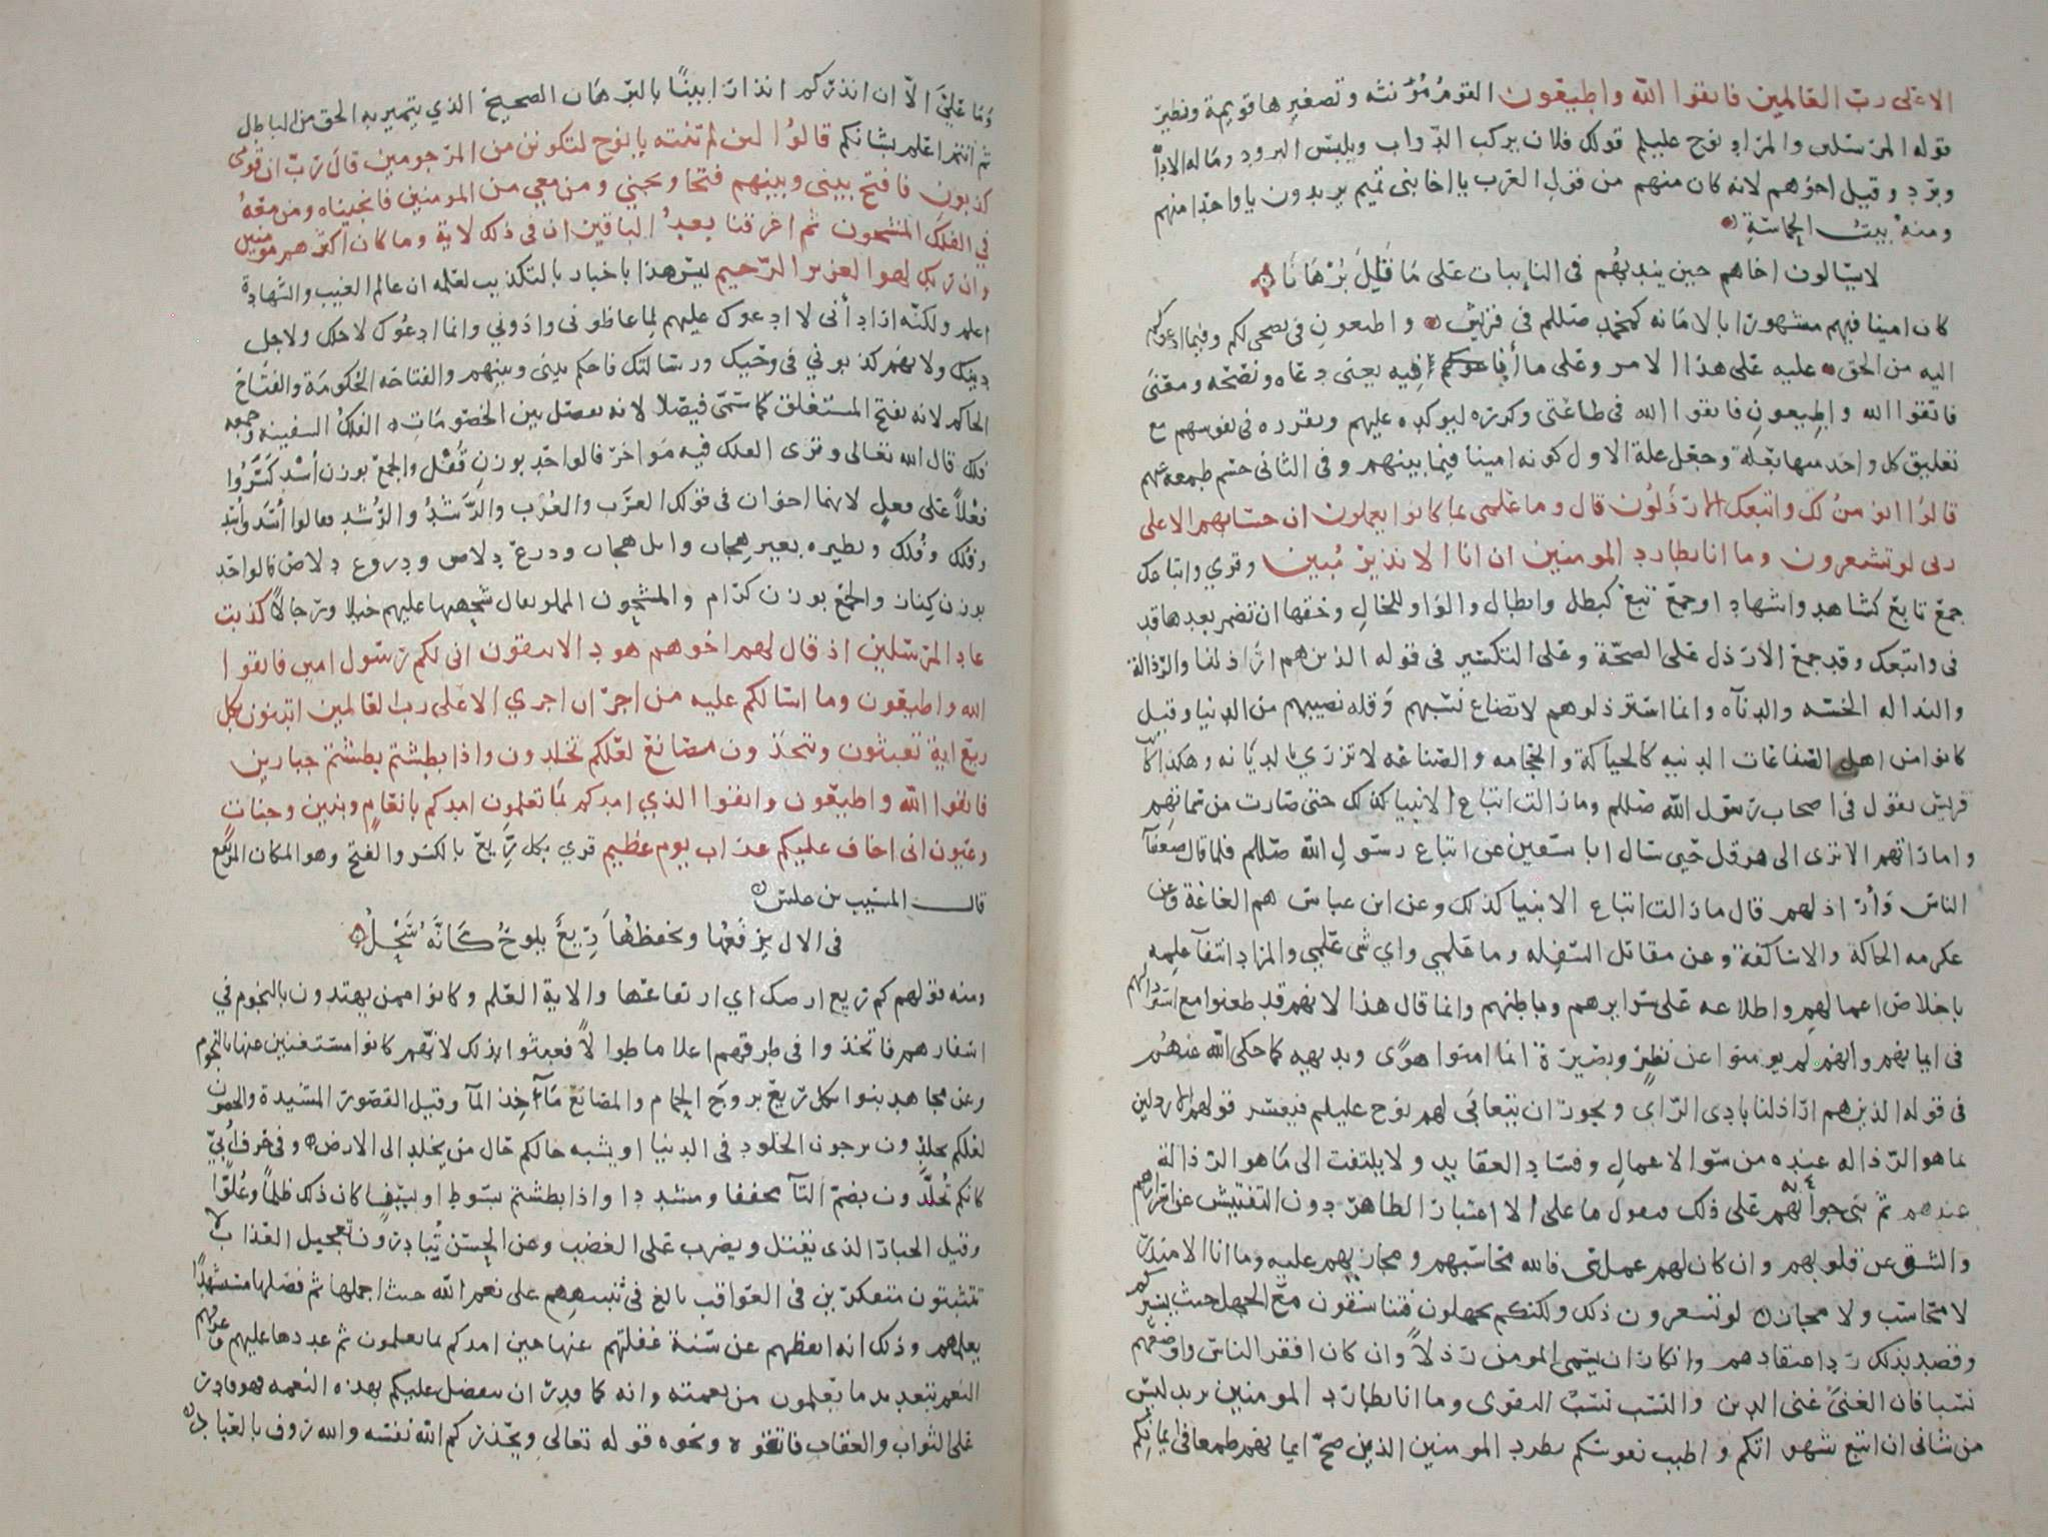 الا على رب العالمين فاتقوا الله واطيعون القوم مؤنثه وتصغيرها قويمة ونظير
قوله المرسلين والمراد نوح عليلم قولك فلان يركب الدواب ويلبس البرود وماله الا دابة
وبرد وقيل اخوهم لانه كان منهم من قول العرب يا اخا بنى تميم يريدون يا واحدا منهم
ومنه بيت الحماسة
لا يسالون اخاهم حين يندبهم فى النايبات على ما قال برهانا
كان امينا فيهم مشهورا بالامانه كمحمد صللم فى قريش واطيعون فى نصحى لكم وفيما ادعوكم
اليه من الحق عليه على هذا الامر وعلى ما أنا فيه يعنى دعاه ونصحه ومعنى
فاتقوا الله واطيعون فاتقوا الله فى طاعتى وكرره ليوكده عليهم ويقرره فى نفوسهم مع
تعليق كل واحد منهما بعلة وجعل علة الاول كونه امينا فيما بينهم وفى الثانى حسم طمعه منهم
قالوا انومن لك واتبعك الارذلون قال وما علمى بما كانوا يعملون ان حسابهم الا على
ربى لو تشعرون وما انا بطارد المومنين ان انا الا نذير مبين وقري واتباعك
جمع تابع كشاهد واشهاد او جمع تبع كبطل وابطال والواو للحال وحقها ان تضمر بعدها قد
فى واتبعك وقد جمع الارذل على الصحة وعلى التكسير فى قوله الذين هم اراذلنا والرذالة
والنذاله الخسه والدناه وانما استرذلوهم لاتضاع نسبهم وقله نصيبهم من الدنيا وقيل
كانوا من اهل الصناعات الدنيه كالحياكة والحجامه والصناعه لا تزري بالديانه وهكذا كانت
قريش تقول فى اصحاب رسول الله صللم وما زالت اتباع الانبيا كذلك حتى صارت من سماتهم
واماراتهم الا ترى الى هرقل حين سال ابا سفين عن اتباع رسول الله صللم فلما قال ضعفآ
الناس وأراذلهم قال ما زالت اتباع الانبيا كذلك وعن ابن عباس هم الغاغة وعن
عكرمه الحاكة والاساكفة وعن مقاتل السفله وما علمى واي شى علمي والمراد انتفآ علمه
باخلاص اعمالهم واطلاعه على سرايرهم وباطنهم وانما قال هذا لانهم قد طعنوا مع استرذالهم
فى ايمانهم وانهم لم يومنوا عن نظر وبصيرة انما امنوا هوى وبديهه كما حكى الله عنهم
فى قوله الذين هم اراذلنا بادى الراى ويجوز ان يتغابى لهم نوح عليلم فيفسر قولهم الارذلين
بما هو الرذاله عنده من سوالاعمال وفساد العقايد ولا يلتفت الى ما هو الرذالة
عندهم ثم بنى جوابهم على ذلك فيقول ما على الا اعتبار الظاهر دون التفتيش عن اسرارهم
والشق عن قلوبهم وان كان لهم عمل سى فالله محاسبهم ومجازيهم عليه وما انا الا منذر
لا محاسب ولا مجاز لو تشعرون ذلك ولكنكم تجهلون فتنساقون مع الجهل حيث يسيركم
وقصد بذلك رد اعتقادهم وانكار ان يسمى المومن رذلا وان كان افقر الناس واوضعهم
نسبا فان الغنى غنى الدين والنسب نسب التقوى وما انا بطارد المومنين يريد ليس
من شانى ان اتبع شهواتكم واطيب نفوسكم بطرد المومنين الذين صح ايمانهم طمعا فى ايمانكم
وما علي الا ان انذركم انذارا بينا بالبرهان الصحيح الذي يتميز به الحق من الباطل
ثم انتم اعلم بشانكم قالوا لين لم تنته يا نوح لتكونن من المرجومين قال رب ان قومى
كذبون فافتح بينى وبينهم فتحا ونجني ومن معي من المومنين فانجيناه ومن معه
في الفلك المشحون ثم اغرقنا بعد الباقين ان فى ذلك لاية وما كان اكثرهم مومنين
وان ربك لهو العزيز الرحيم ليس هذا باخبار بالتكذيب لعلمه ان عالم الغيب والشهادة
اعلم ولكنه اراد أنى لا ادعوك عليهم لما غاظونى واذوني وانما ادعوك لاجلك ولاجل
دينك ولانهم كذبوني فى وحيك ورسالتك فاحكم بينى وبينهم والفتاحه الحكومة والفتاح
الحاكم لانه يفتح المستغلق كما سمى فيصلا لانه يفصل بين الخصومات الفلك السفينه وجمعه
فلك قال الله تعالى وترى الفلك فيه مواخر فالواحد بوزن قفل والجمع بوزن أسد كسروا
فعلا على فعل لانهما اخوان فى قولك العرب والعرب والرشد والرشد فقالوا أسد وأسد
وفلك وفلك ونظيره بعير هجان وابل هجان ودرع دلاص ودروع دلاص فالواحد
بوزن كناز والجمع بوزن كرام والمشحون المملو يقال شحنها عليهم خيلا ورجالا كذبت
عاد المرسلين اذ قال لهم اخوهم هود الا تتقون انى لكم رسول امين فاتقوا
الله واطيعون وما اسالكم عليه من اجر ان اجري الا على رب العالمين اتبنون بكل
ريع اية تعبثون وتتخذون مصانع لعلكم تخلدون واذا بطشتم بطشتم جبارين
فاتقوا الله واطيعون واتقوا الذي امدكم بما تعلمون امدكم بانعام وبنين وجنات
وعيون انى اخاف عليكم عذاب يوم عظيم قري بكل ريع بالكسر والفتح وهو المكان المرتفع
قال المسيب بن علس
فى الال يرفعها ويخفضها ريع يلوح كأنه سحل
ومنه قولهم كم ريع ارضك اي ارتفاعها والاية العلم وكانوا ممن يهتدون بالنجوم في
اسفارهم فاتخذوا فى طرقهم اعلاما طوالا فعبثوا بذلك لانهم كانوا مستغنين عنها بالنجوم
وعن مجاهد بنوا بكل ريع بروج الحمام والمصانع مآخذ المآ وقيل القصور المشيدة والحصون
لعلكم تخلدون ترجون الخلود فى الدنيا او يشبه حالكم حال من يخلد الى الارض وفى حرف أبى
كانكم تخلدون بضم التآ مخففا ومشددا واذا بطشتم بسوط او بسيف كان ذلك ظلما وعلوا
وقيل الجبار الذى يقتل ويضرب على الغضب وعن الحسن تبادرون تعجيل العذاب لا
تتثبتون متفكرين فى العواقب بالغ فى تنبيههم على نعم الله حيث اجملها ثم فصلها مستشهدا
بعلمهم وذلك انه ايقظهم عن سنة غفلتهم عنها حين امدكم بما تعلمون ثم عددها عليهم وعرفهم
المنعم بتعديد ما تعلمون من نعمته وانه كما قدر ان يتفضل عليكم بهذه النعمه فهو قادر
على الثواب والعقاب فاتقوه ونحوه قوله تعالى ويحذركم الله نفسه والله روف بالعباد